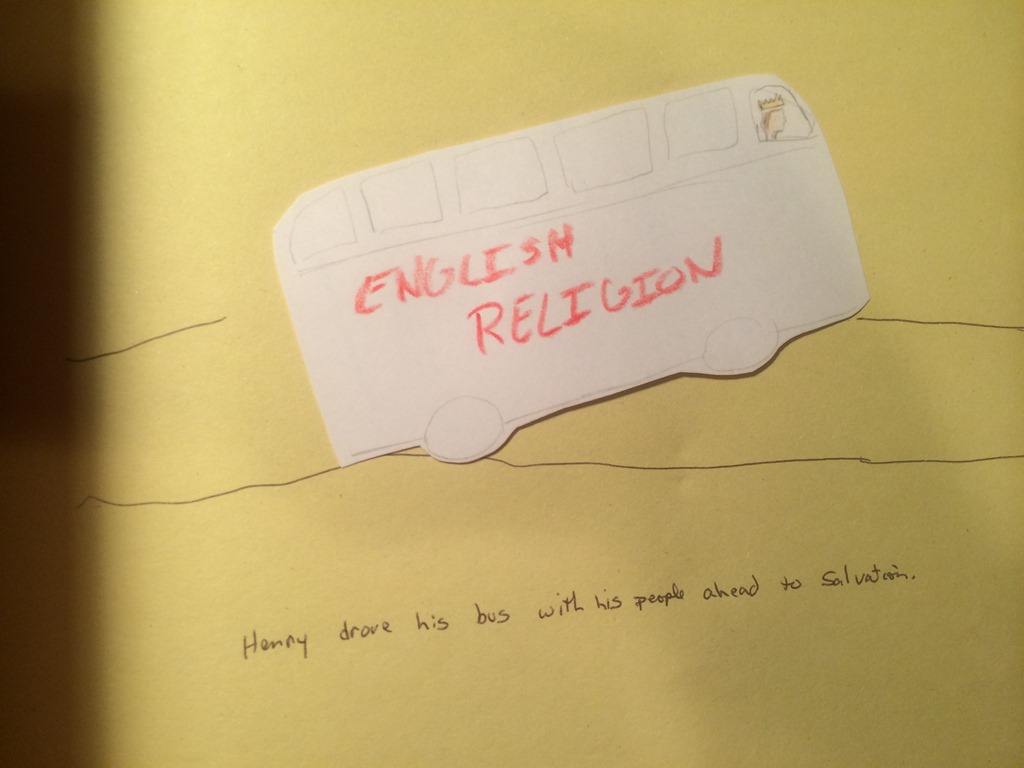 ENGLISH
RELIGION
Henny drove his bus with his people ahead to Salvation.